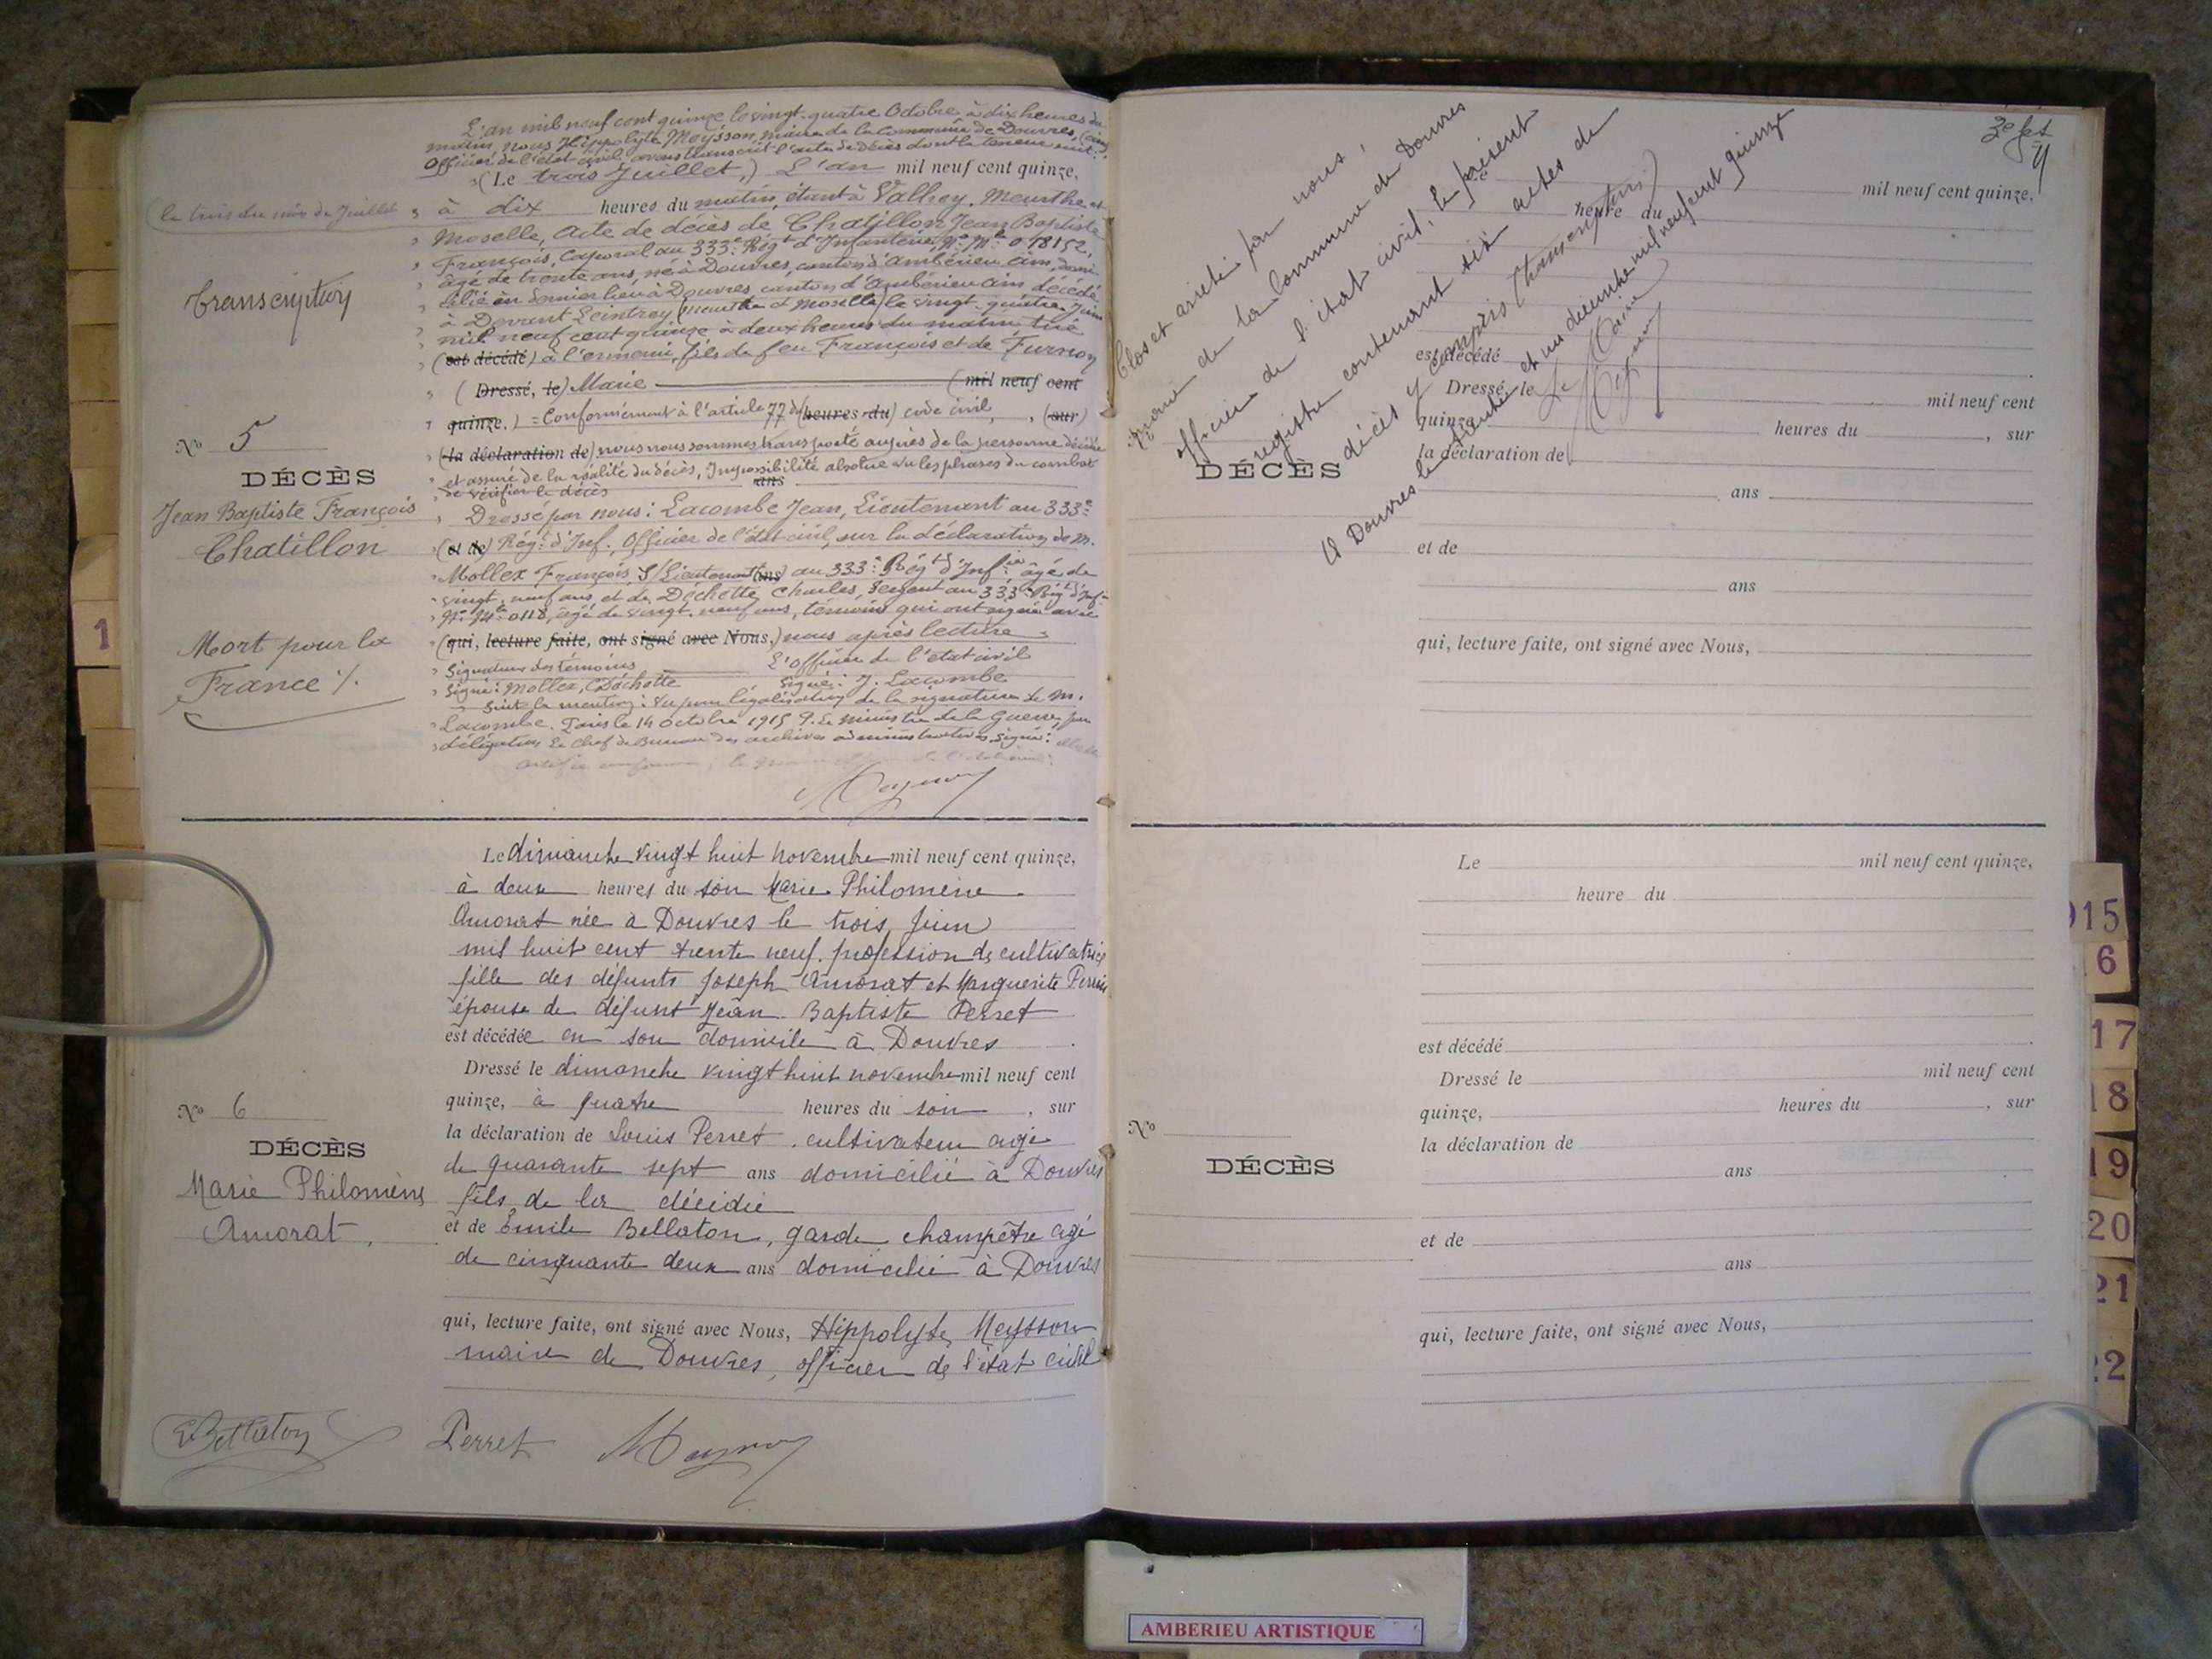 L'an mil neuf cent quinze le vingt-quatre Octobre à dix heures du
matin, nous Hippolyte Meysson, maire de la Commune de Douvres, (Ain)
Officier de l'état civil, avons transcrit l'acte de décès dont la teneur suit:
(Le trois Juillet,) L'an mil neuf cent quinze,
(le trois du mois de Juillet à dix heures du matin, étant à Vathey, Meurthe et
Moselle, Acte de décès de Chatillon Jean Baptiste
François, Caporal au 333e Régt d'Infanterie, No Mle 018152,
âgé de trente ans, né à Douvres, canton d'Ambérieu Ain, domi-
cilié en dernier lieu à Douvres, canton d'Ambérieu Ain décédé
à Devant Leintrey (Meurthe et Moselle) le vingt-quatre Juin
mil neuf cent quinze à deux heures du matin, tué
(est décédé) à l'ennemi, fils de feu François et de Furnon
(Dressé, le) Marie (mil neuf cent
quinze.) = Conformément à l'article 77 du (heures du) code civil, , (sur)
(la déclaration de) nous nous sommes transporté auprès de la personne décédée
et assuré de la réalité du décès, Impossibilité absolue vu les phases du combat
de vérifier le décès ans
Dressé par nous: Lacombe Jean, Lieutenant au 333e
(et de) Régt d'Inf., Officier de l'état-civil, sur la déclaration de M.
Mollex François, S/Lieutenant (ans) au 333e Régt d'Infie âgé de
vingt-neuf ans, et de Déchette Charles, Sergent au 333e Régt d'Infie
No Mle 0118, âgé de vingt-neuf ans, témoins qui ont signé avec
(qui, lecture faite, ont signé avec Nous,) nous après lecture
Signature des témoins L'officier de l'état civil
Signé: Mollex, Déchette Signé: J. Lacombe
Suit la mention: Vu pour légalisation de la signature de M.
Lacombe. Paris le 14 octobre 1915 P. le ministre de la Guerre, par
délégation Le Chef de Bureau des archives administratives, signé:
Transcription
No 5
DÉCÈS
Jean Baptiste François
Chatillon
Mort pour la
France ./.
Le dimanche vingt huit novembre mil neuf cent quinze,
à deux heures du soir Marie Philomène
Amorat née à Douvres le trois Juin
mil huit cent trente neuf. profession de cultivatrice
fille des défunts Joseph Amorat et Marguerite Perrin
épouse de défunt Jean Baptiste Perret
est décédée en son domicile à Douvres
Dressé le dimanche vingt huit novembre mil neuf cent
quinze, à quatre heures du soir, sur
la déclaration de Louis Perret, cultivateur agé
de quarante sept ans domicilié à Douvres
fils de la décédée
et de Emile Bellaton, garde champêtre agé
de cinquante deux ans domicilié à Douvres
qui, lecture faite, ont signé avec Nous, Hippolyte Meysson
maire de Douvres, officier de l'état civil
E Bellaton Perret
No 6
DÉCÈS
Marie Philomène
Amorat,
Clos et arrêté par nous,
maire de la Commune de Douvres
officier de l'état civil, le présent
registre contenant six actes de
décès y compris (transcriptions)
A Douvres le trente et un décembre mil neuf cent quinze
Le Maire
Le mil neuf cent quinze,
heure du
est décédé
Dressé, le mil neuf cent
quinze heures du , sur
la déclaration de
ans
DÉCÈS
et de
ans
qui, lecture faite, ont signé avec Nous,
Le mil neuf cent quinze,
heure du
est décédé
Dressé le mil neuf cent
quinze, heures du , sur
No
la déclaration de
DÉCÈS
ans
et de
ans
qui, lecture faite, ont signé avec Nous,
1
915
6
17
18
19
20
21
22
AMBERIEU ARTISTIQUE